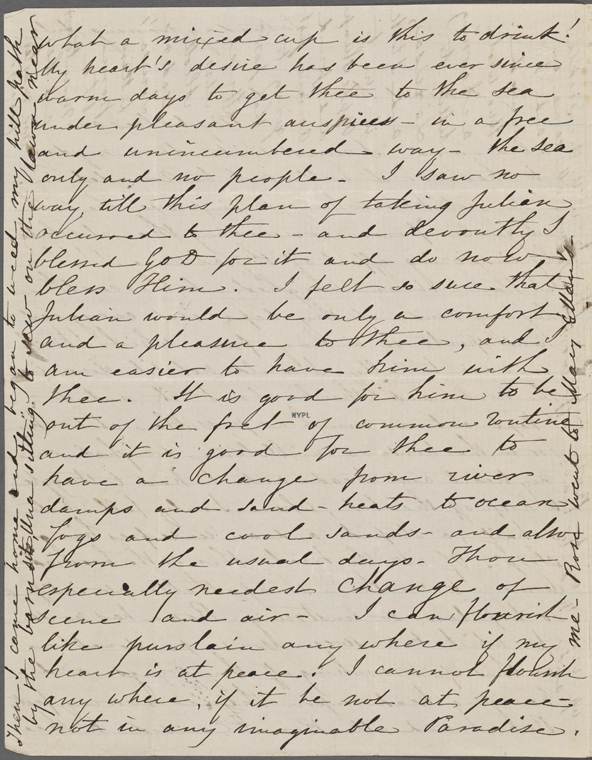 what a mixed cup is this to drink!
My heart's desire has been ever since
warm days to get thee to the sea
under pleasant auspices - in a free
and unincumbered way - the sea
only and no people - I saw no
way till this plan of taking Julian
occurred to thee - and devoutly I
blessed GOD for it and do now
bless Him. I felt so sure that
Julian would be only a comfort
and a pleasure to thee, and I
am easier to have him with
thee. It is good for him to be
out of the fret of common routine
and it is good for thee to
have a change from river
damps and sand-heats to ocean
fogs and cool sands - and also
from the usual days. Thou
especially needest change of
scene and air - I can flourish
like purslain any where if my
heart is at peace. I cannot flourish
any where, if it be not at peace -
not in any imaginable Paradise.
Then I came home and began to weed my hill path
by the barn Una sitting to sew on the lawn near
me - Rose went to Mary Ellen's
NYPL